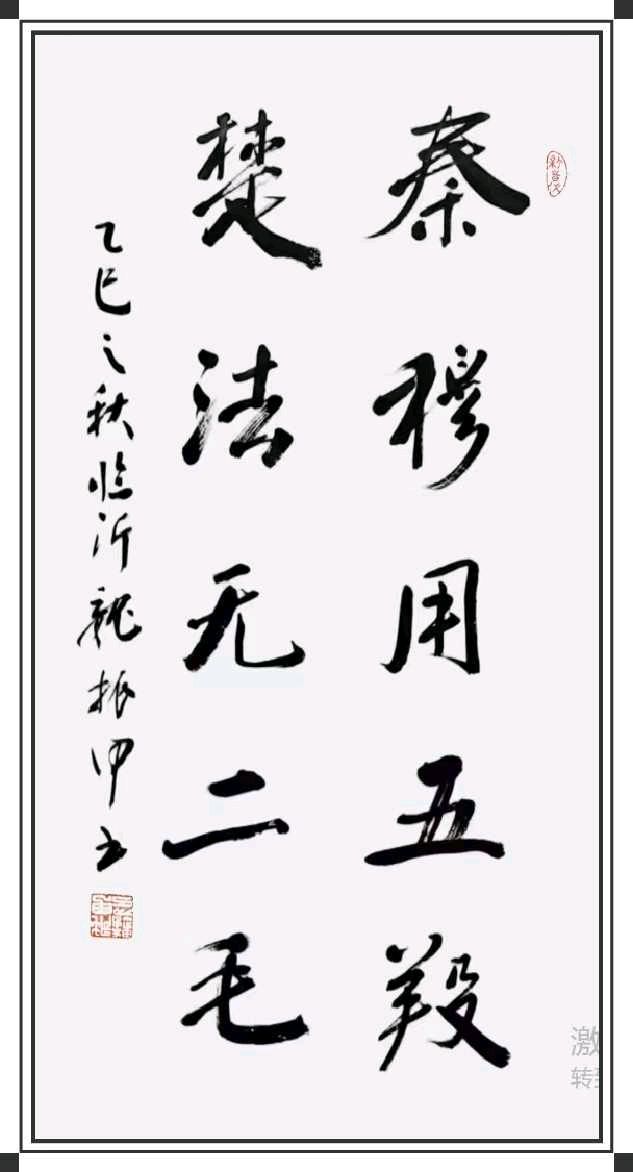 秦穆用五羖
楚法无二毛
乙巳之秋临沂魏振甲书
激
转到